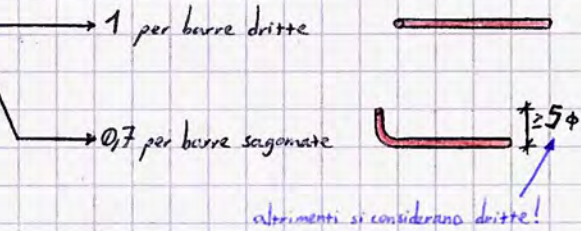 1 per barre dritte
0,7 per barre sagomate
≥5ϕ
altrimenti si considerano dritte!